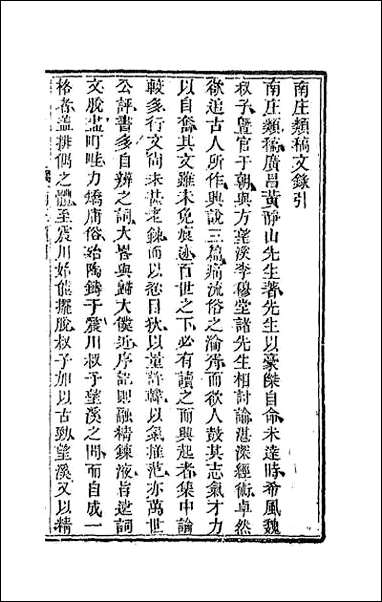 南庄類稿文錄引
南庄類稿廣昌黃靜山先生著先生以豪傑自命未達時希風魏
叔子曁官于朝與方望溪李穆堂諸先生相討論湛深經術卓然
欲追古人所作興說三篇痛流俗之淪胥而欲人鼓其志氣才力
以自奮其文雖未免痕迹百世之下必有讀之而興起者集中論
較多行文尙未甚老鍊而以忽目狄以董許韓以氣推范亦萬世
公評書多自辨之詞大畧與歸大僕近序記則融精鍊液旨遠詞
文脫盡町畦力矯庸俗殆陶鑄于震川叔子望溪之間而自成一
格者盖排偶之體至震川始能擺脫叔子加以古勁望溪又以精